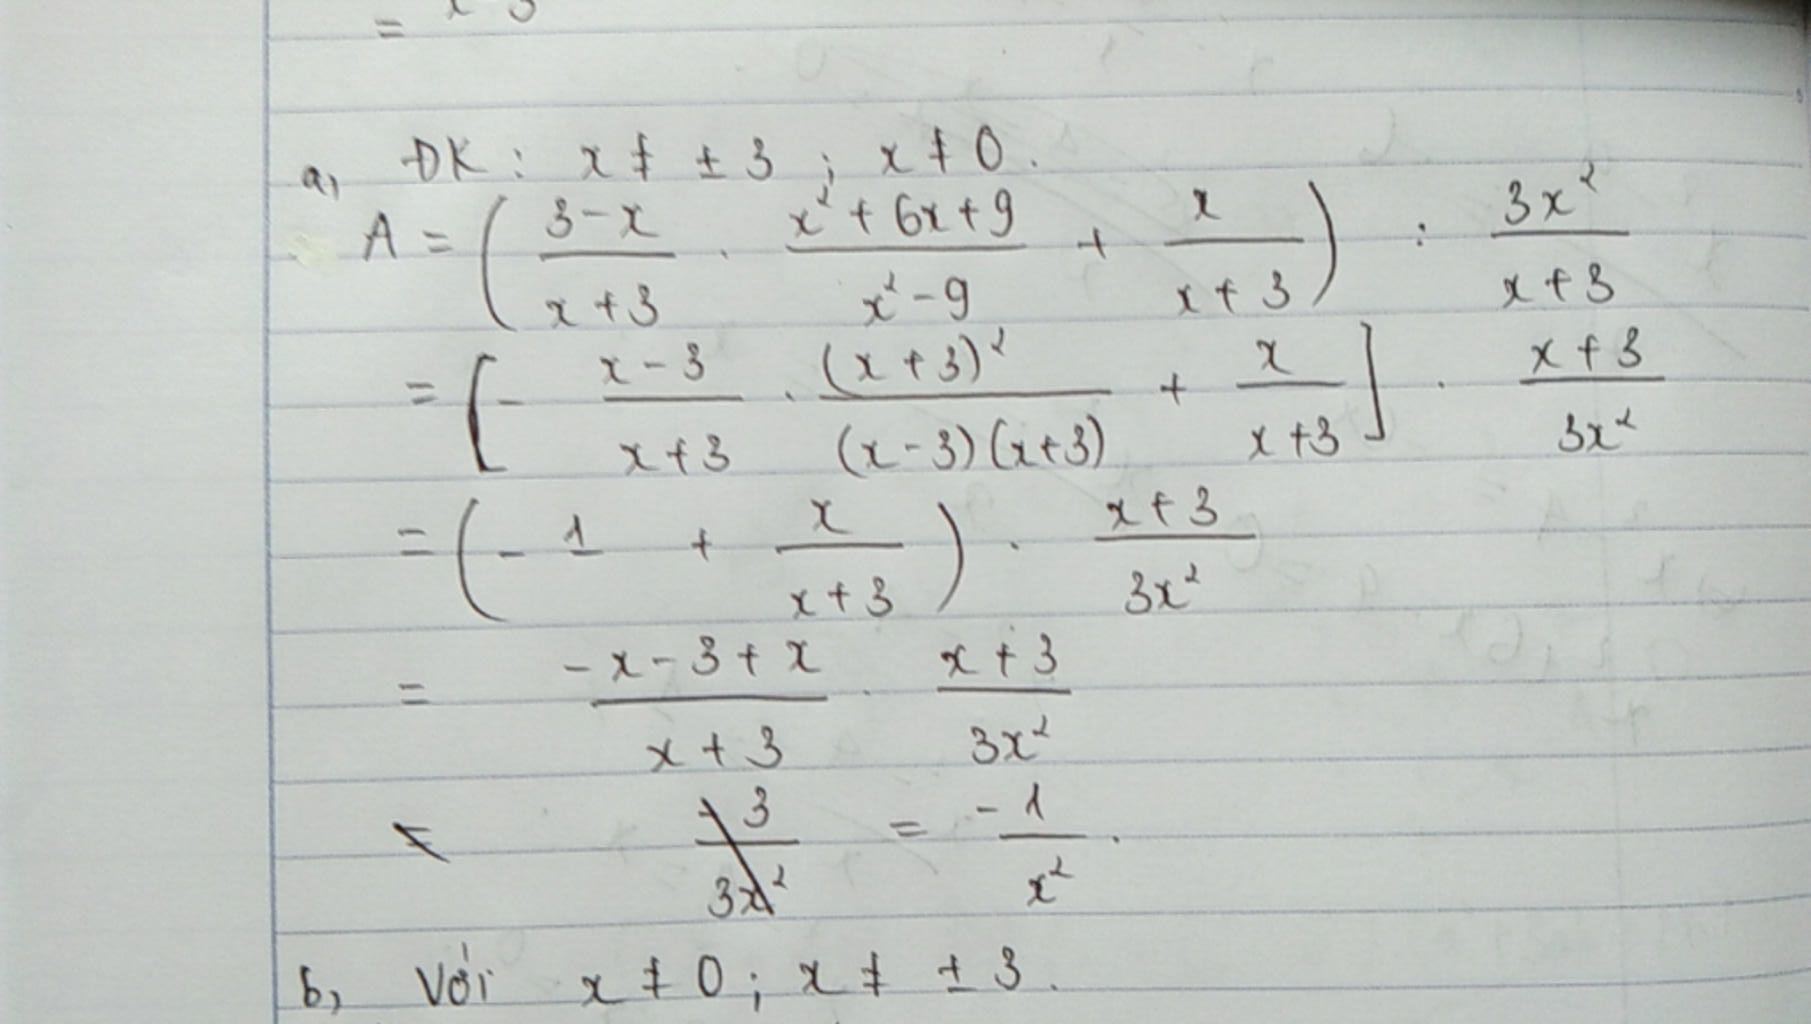 = x-3
a, ĐK: x ≠ ± 3 ; x ≠ 0.
A = ( (3-x)/(x+3) . (x²+6x+9)/(x²-9) + x/(x+3) ) : 3x²/(x+3)
= [ - (x-3)/(x+3) . (x+3)²/((x-3)(x+3)) + x/(x+3) ] . (x+3)/3x²
= ( - 1 + x/(x+3) ) . (x+3)/3x²
= (-x-3+x)/(x+3) . (x+3)/3x²
= -3/3x² = -1/x² .
b, Với x ≠ 0 ; x ≠ ± 3 .